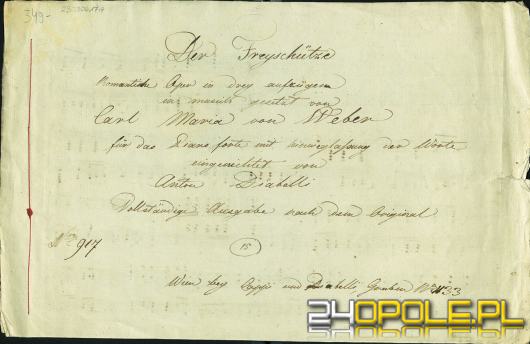 349-
Der Freyschütze
Romantische Oper in drey aufzügen
in musik gesetzt von
Carl Maria von Weber
für das Piano forte mit hinweglaßung der Worte
eingerichtet von
Anton Diabelli
Vollständige Ausgabe nach dem Original
No 917
15
Wien bey Cappi und Diabelli, Graben No 1133
24OPOLE.PL